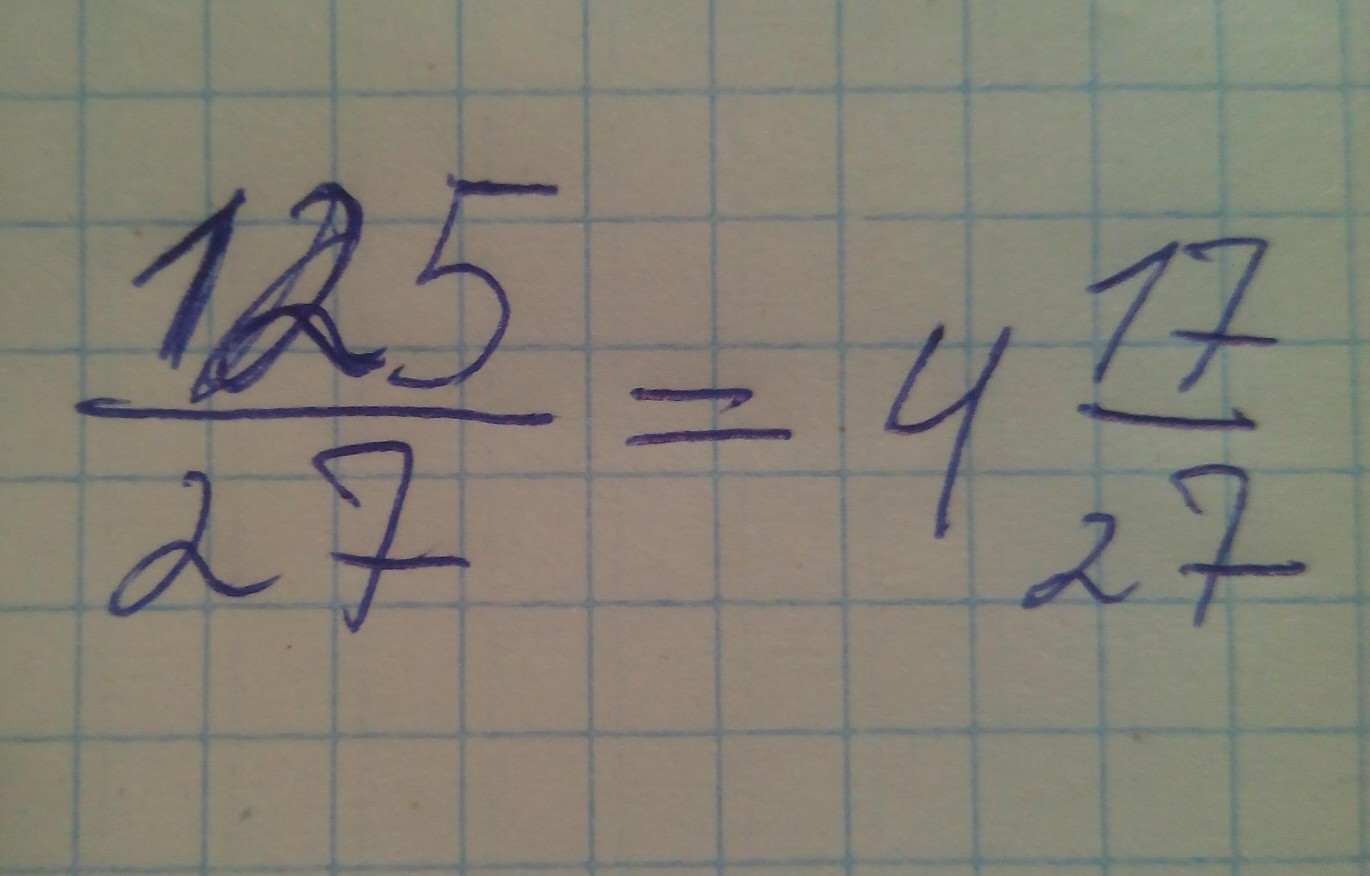 125/27 = 4 17/27